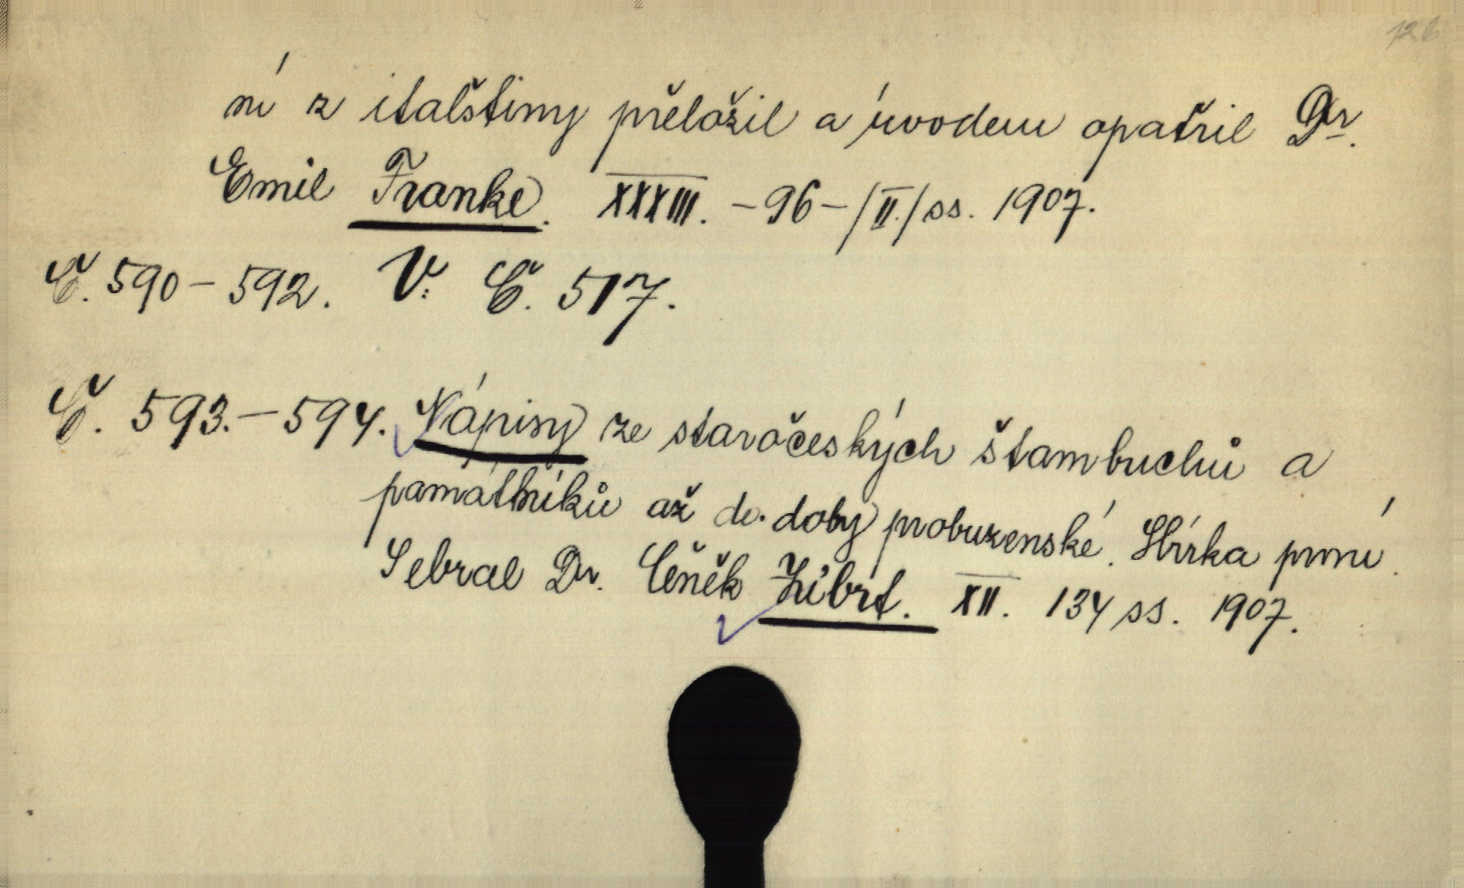 126
ní z italštiny přeložil a úvodem opatřil Dr.
Emil Franke. XXXIII. – 96 – /II./ ss. 1907.
Č. 590 – 592. V: Č. 517.
Č. 593. – 594. Nápisy ze staročeských štambuchů a
památníků až do doby probuzenské. Sbírka první.
Sebral Dr. Čeněk Zíbrt. XII. 134 ss. 1907.